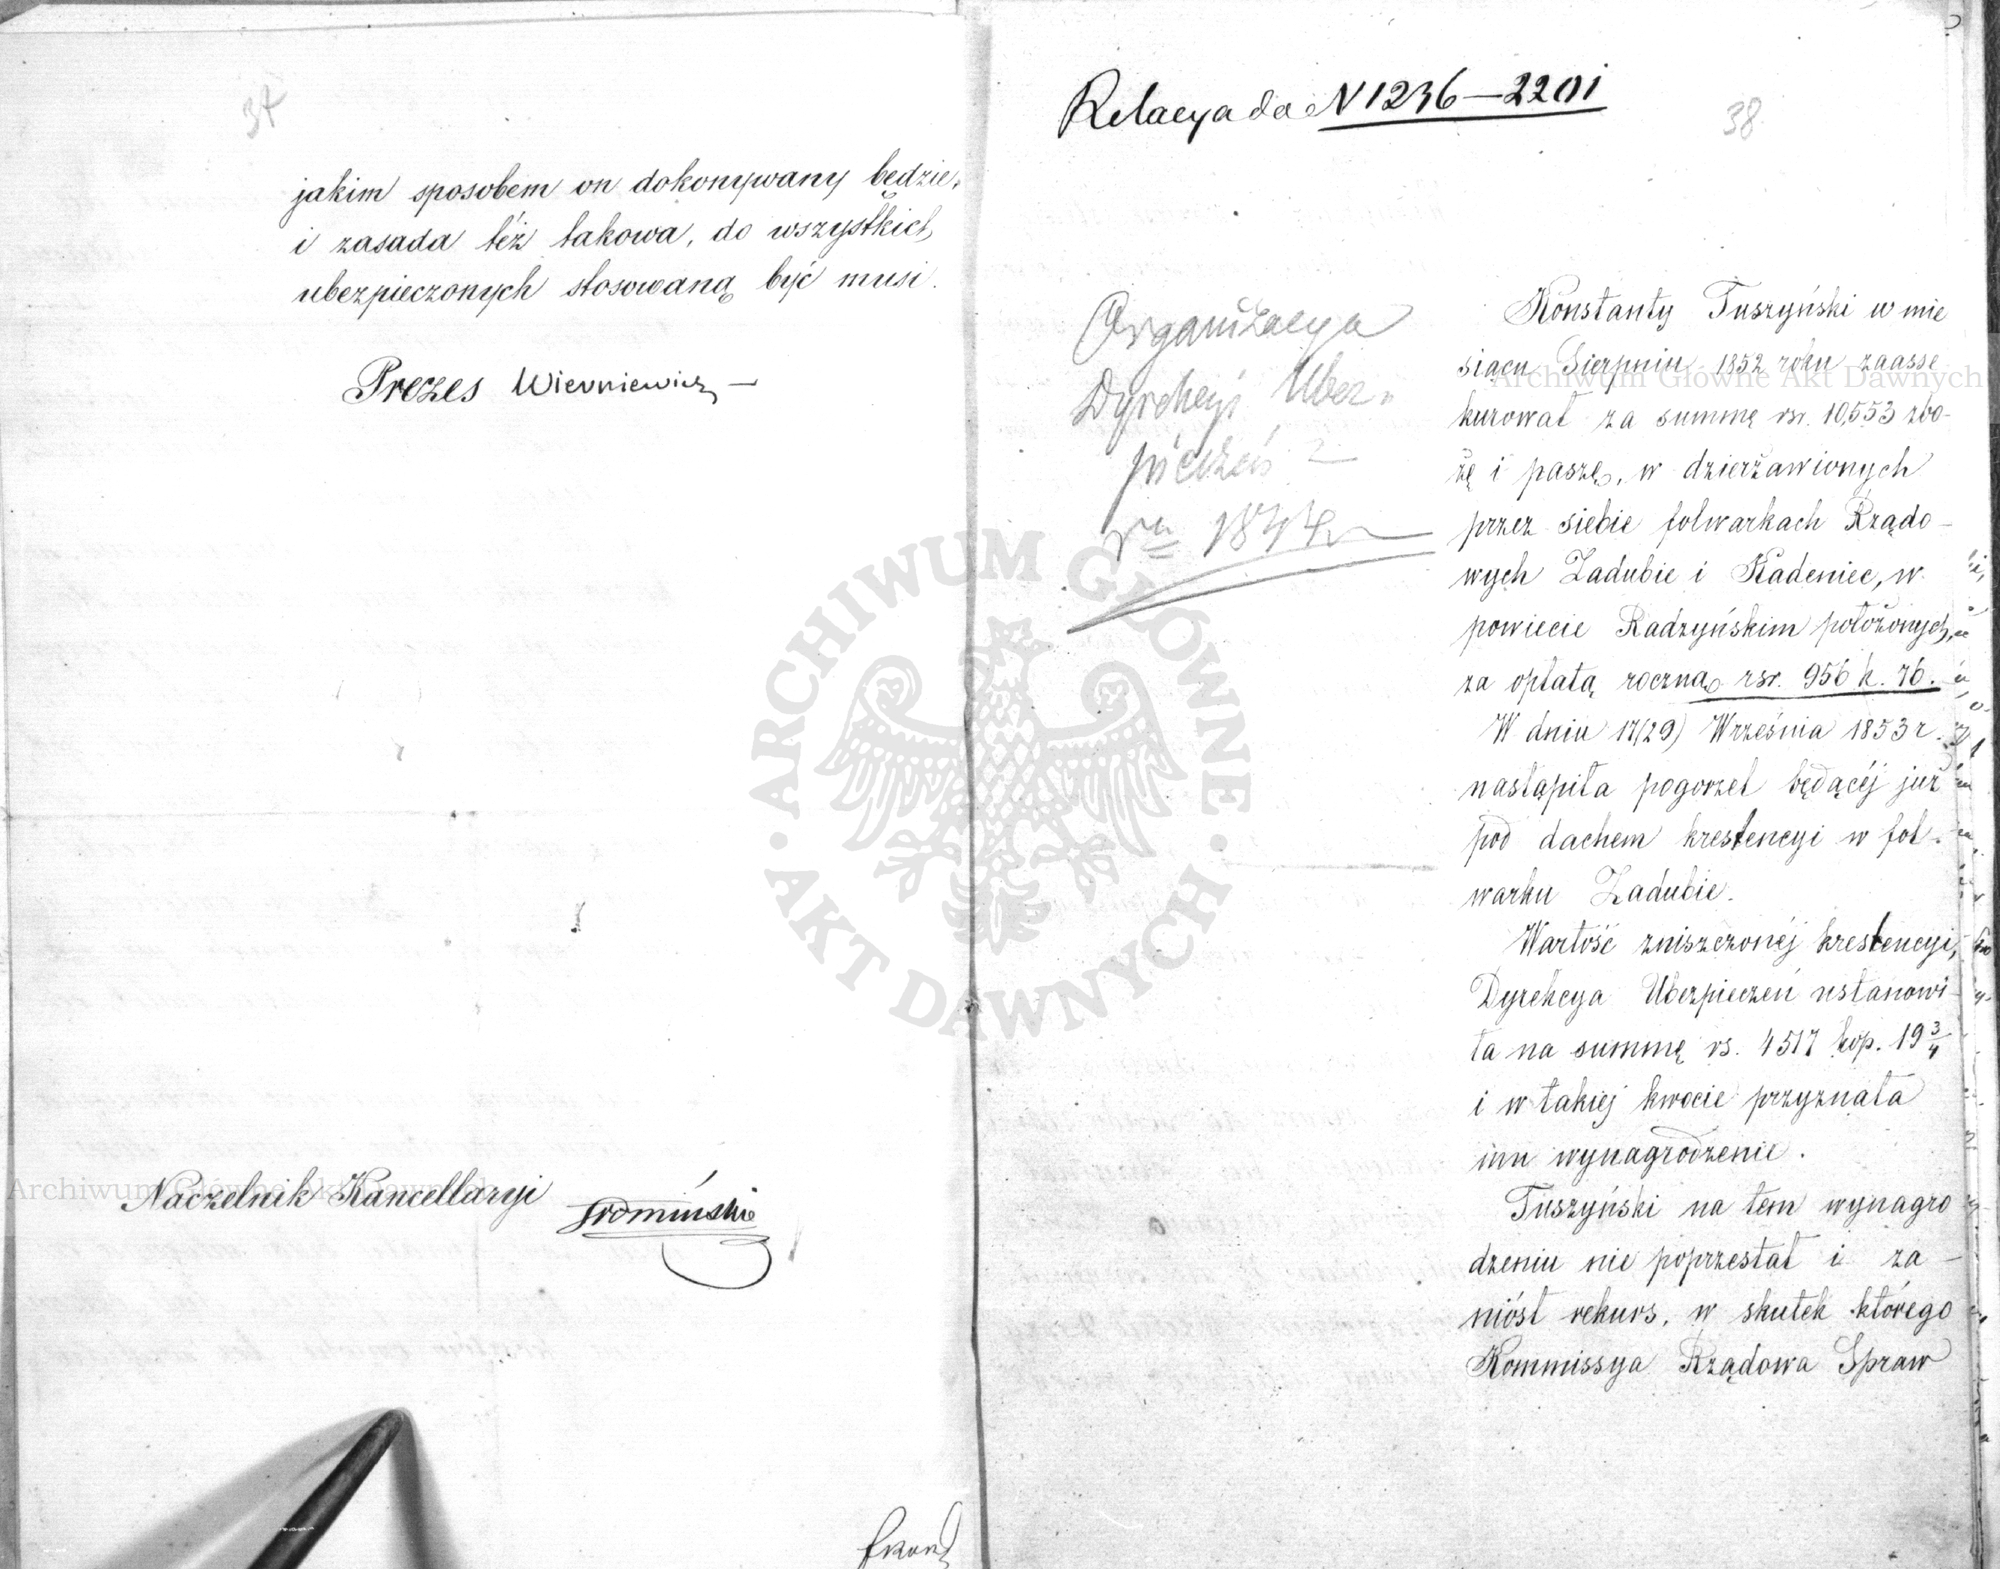 37
jakim sposobem on dokonywany będzie,
i zasada téż takowa, do wszystkich
ubezpieczonych stosowaną być musi.
Prezes
Naczelnik Kancellaryi
Relacya do N 1236—2201
38
Organizacya
Dyrekcyi Ubez-
pieczeń z
Konstanty Tuszyński w mie
siącu Sierpniu 1852 roku zaasse
kurował za summę rsr. 10,553 zbo-
żę i paszę, w dzierżawionych
przez siebie folwarkach Rządo-
wych Zadubie i Kadeniec, w
powiecie Radzyńskim położonych,
za opłatą roczną rsr. 956 k. 76.
W dniu 17(29) Września 1853 r.
nastąpiła pogorzel będącéj już
pod dachem krestencyi w fol-
warku Zadubie.
Wartość zniszczonéj krestencyi,
Dyrekcya Ubezpieczeń ustanowi-
ła na summę rs. 4517 kop. 19 3/4
i w takiej kwocie przyznała
mu wynagrodzenie.
Tuszyński na tem wynagro
dzeniu nie poprzestał i za-
niósł rekurs, w skutek którego
Kommissya Rządowa Spraw
ARCHIWUM GŁÓWNE
AKT DAWNYCH
Archiwum Główne Akt Dawnych
Archiwum Główne Akt Dawnych